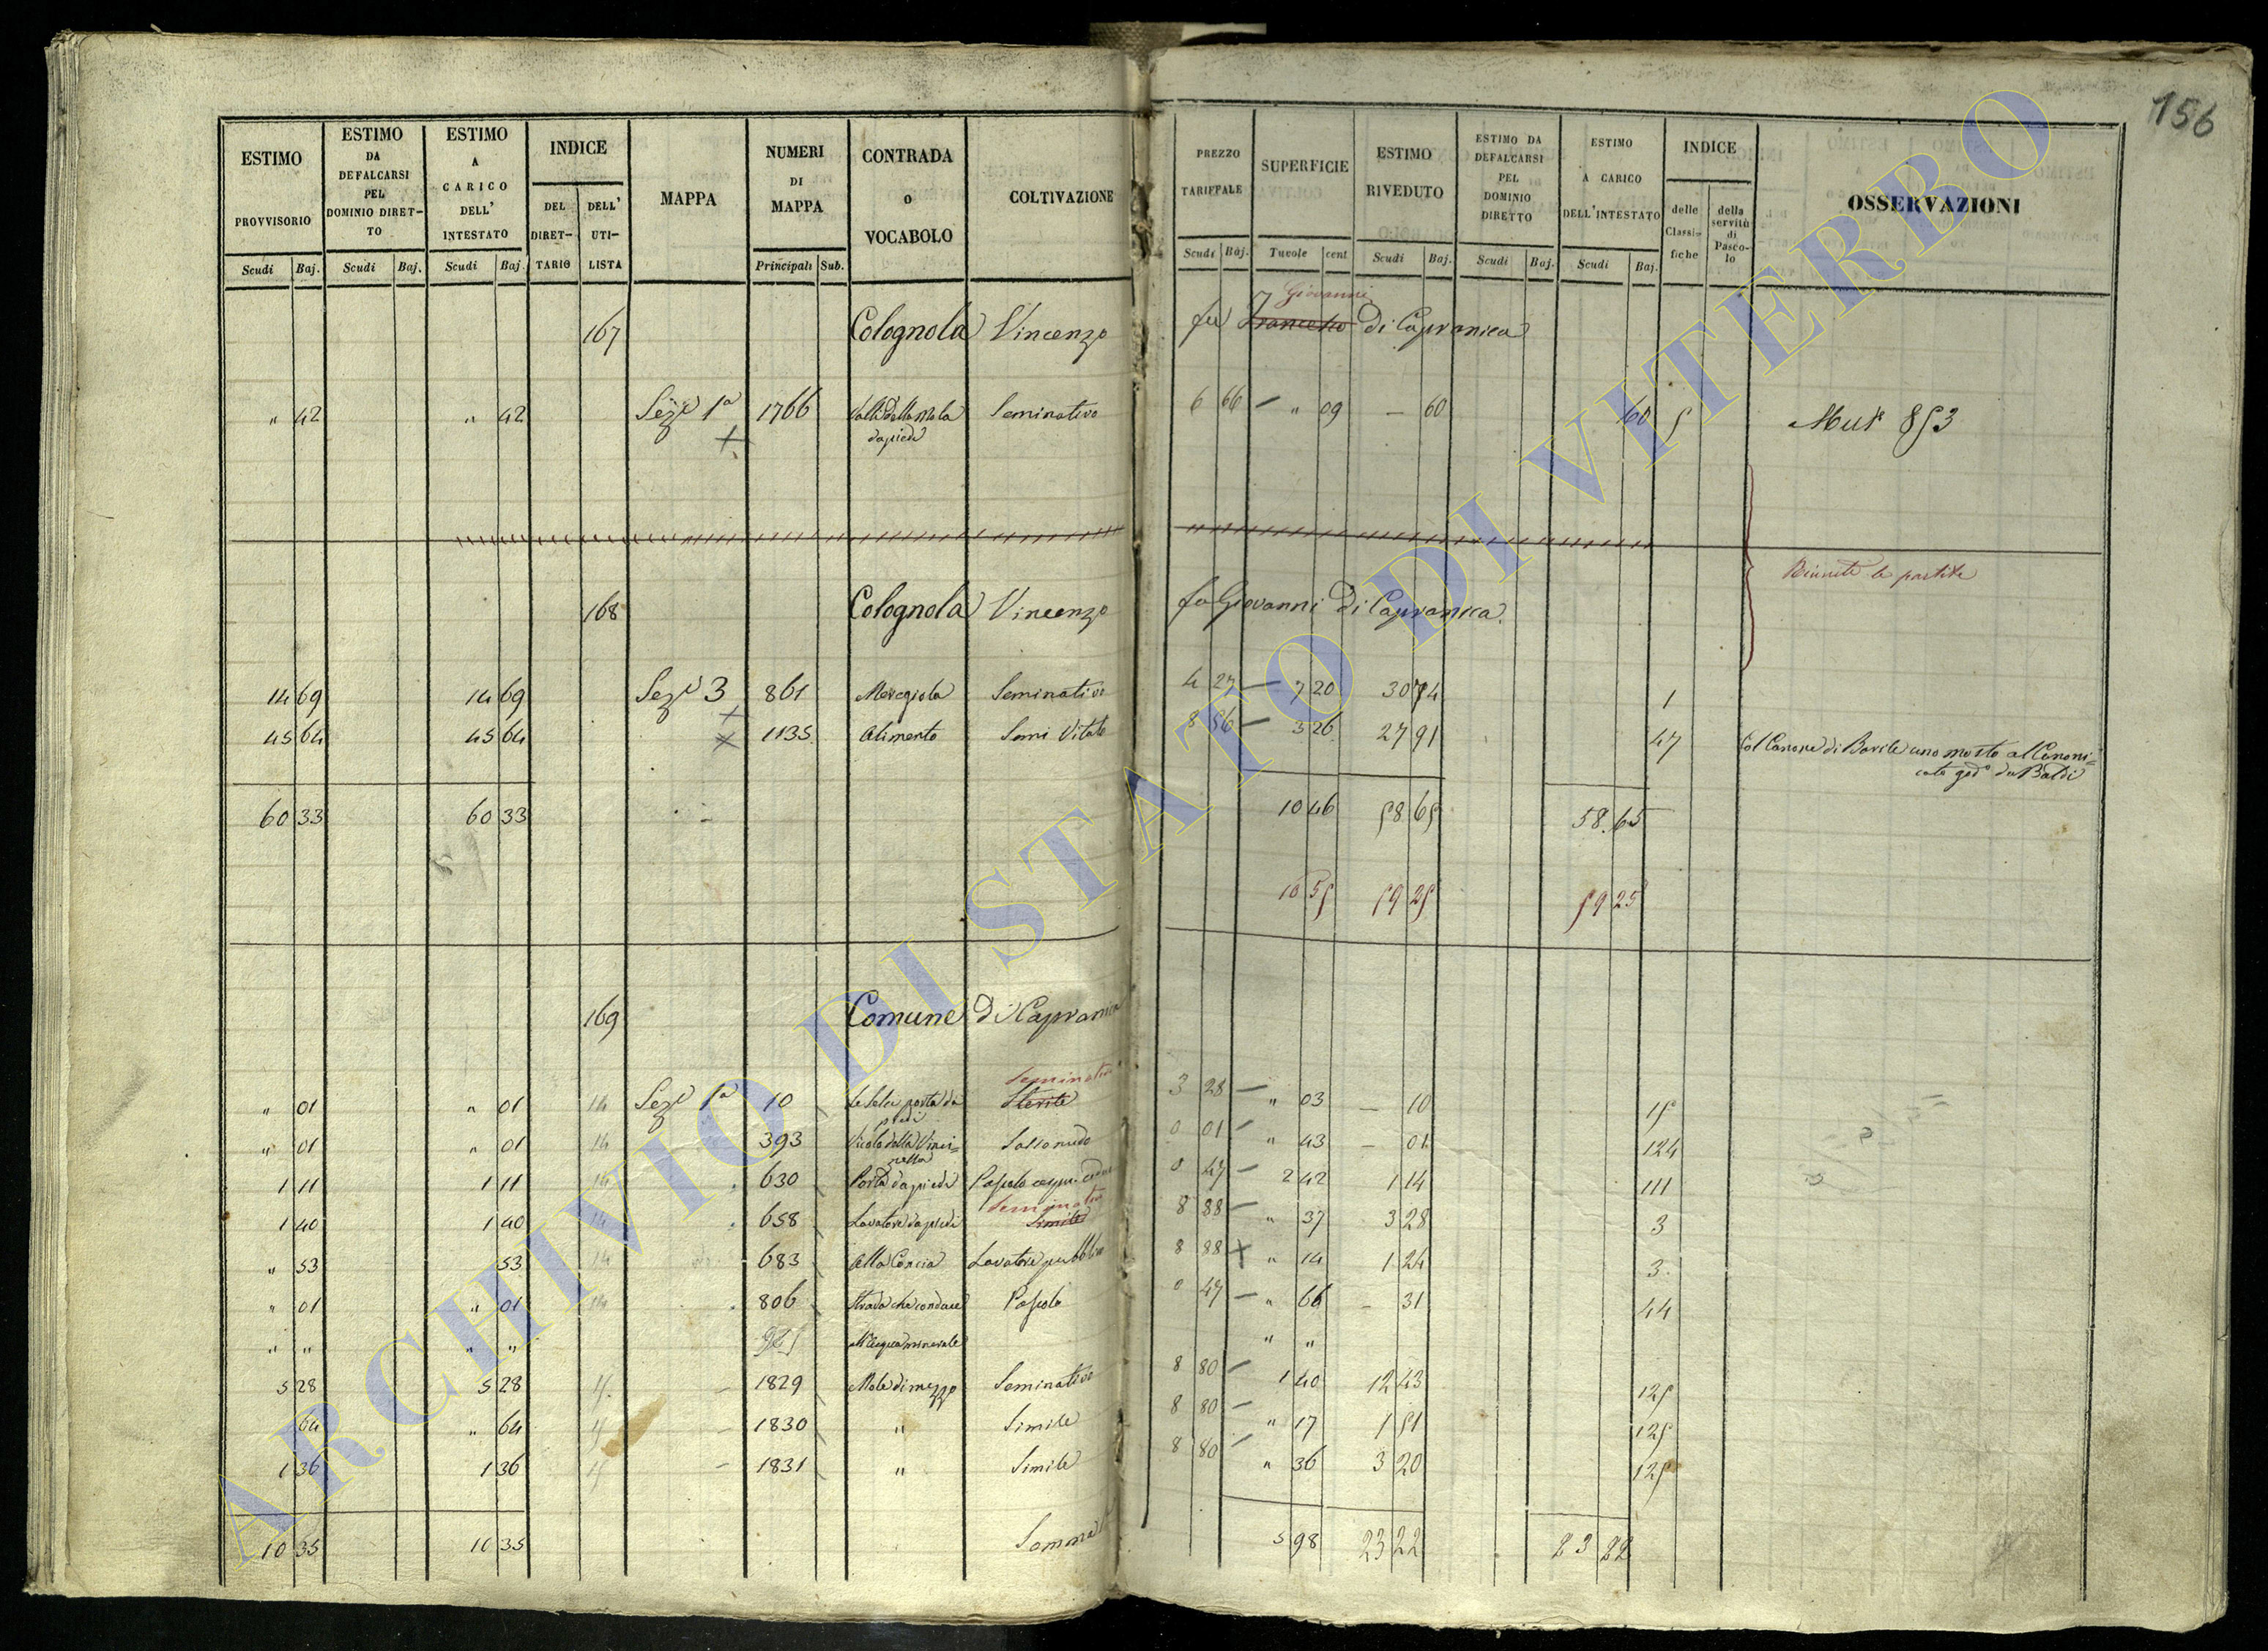 156
ESTIMO PROVVISORIO Scudi Baj.
ESTIMO DA DEFALCARSI PEL DOMINIO DIRET- TO Scudi Baj.
ESTIMO A CARICO DELL' INTESTATO Scudi Baj.
INDICE DEL DIRET- TARIO DELL' UTI- LISTA
MAPPA
NUMERI DI MAPPA Principali Sub.
CONTRADA o VOCABOLO
COLTIVAZIONE
PREZZO TARIFFALE Scudi Baj.
SUPERFICIE Tavole cent
ESTIMO RIVEDUTO Scudi Baj.
ESTIMO DA DEFALCARSI PEL DOMINIO DIRETTO Scudi Baj.
ESTIMO A CARICO DELL'INTESTATO Scudi Baj.
INDICE delle Classi- fiche della servitù di Pasco- lo
OSSERVAZIONI
Giovanni
167 Colognola Vincenzo fu Francesco di Capranica
" 42 " 42 Sez.e 1a 1766 Valle della Mola Seminativo 6 66 — " 09 — 60 60 5 Mut.e 853
da piedi
Riunite le partite
168 Colognola Vincenzo fu Giovanni di Capranica
14 69 14 69 Sez.e 3 861 Seminativo 4 27 — 7 20 30 74 1
45 64 45 64 1135 Alimento Semi Vitato 8 56 — 3 26 27 91 47 Col Canone di Barile uno mosto al Canoni=
cato god.o da Baldi
60 33 60 33 10 46 58 65 58.65
10 55 59 25 59 25
169 Comune di Capranica
Seminativo
" 01 " 01 14 Sez.e 1a 10 Le Selci porta da Sterite 3 28 — " 03 — 10 15
piedi
" 01 " 01 14 393 Vicolo della Sasso nudo 0 01 — " 43 — 01 124
1 11 1 11 14 630 Porta da piedi Pascolo 0 47 — 2 42 1 14 111
Seminativo
1 40 1 40 14 658 Lavatore da piedi Simile 8 88 — " 37 3 28 3
" 53 53 14 683 Alla Concia Lavatore pubblico 8 88 " 14 1 24 3
" 01 " 01 14 806 Strada che conduce Pascolo 0 47 — " 66 — 31 44
" " " " all'acqua minerale " "
5 28 5 28 15 1829 Mola di mezzo Seminativo 8 80 — 1 40 12 43 125
64 " 64 15 1830 " Simile 8 80 — " 17 1 51 125
1 36 1 36 15 1831 " Simile 8 80 — " 36 3 20 125
10 35 10 35 Somma 5 98 23 22 23 22
ARCHIVIO DI STATO DI VITERBO